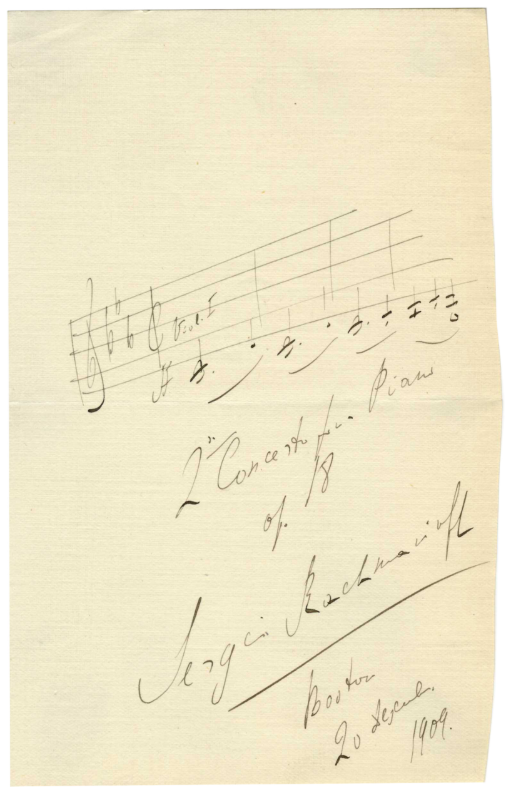 Viol. I
ff
2ᵐ Concerto pour Piano
op. 18
Sergei Rachmaninoff
Boston
20 decem.
1909.